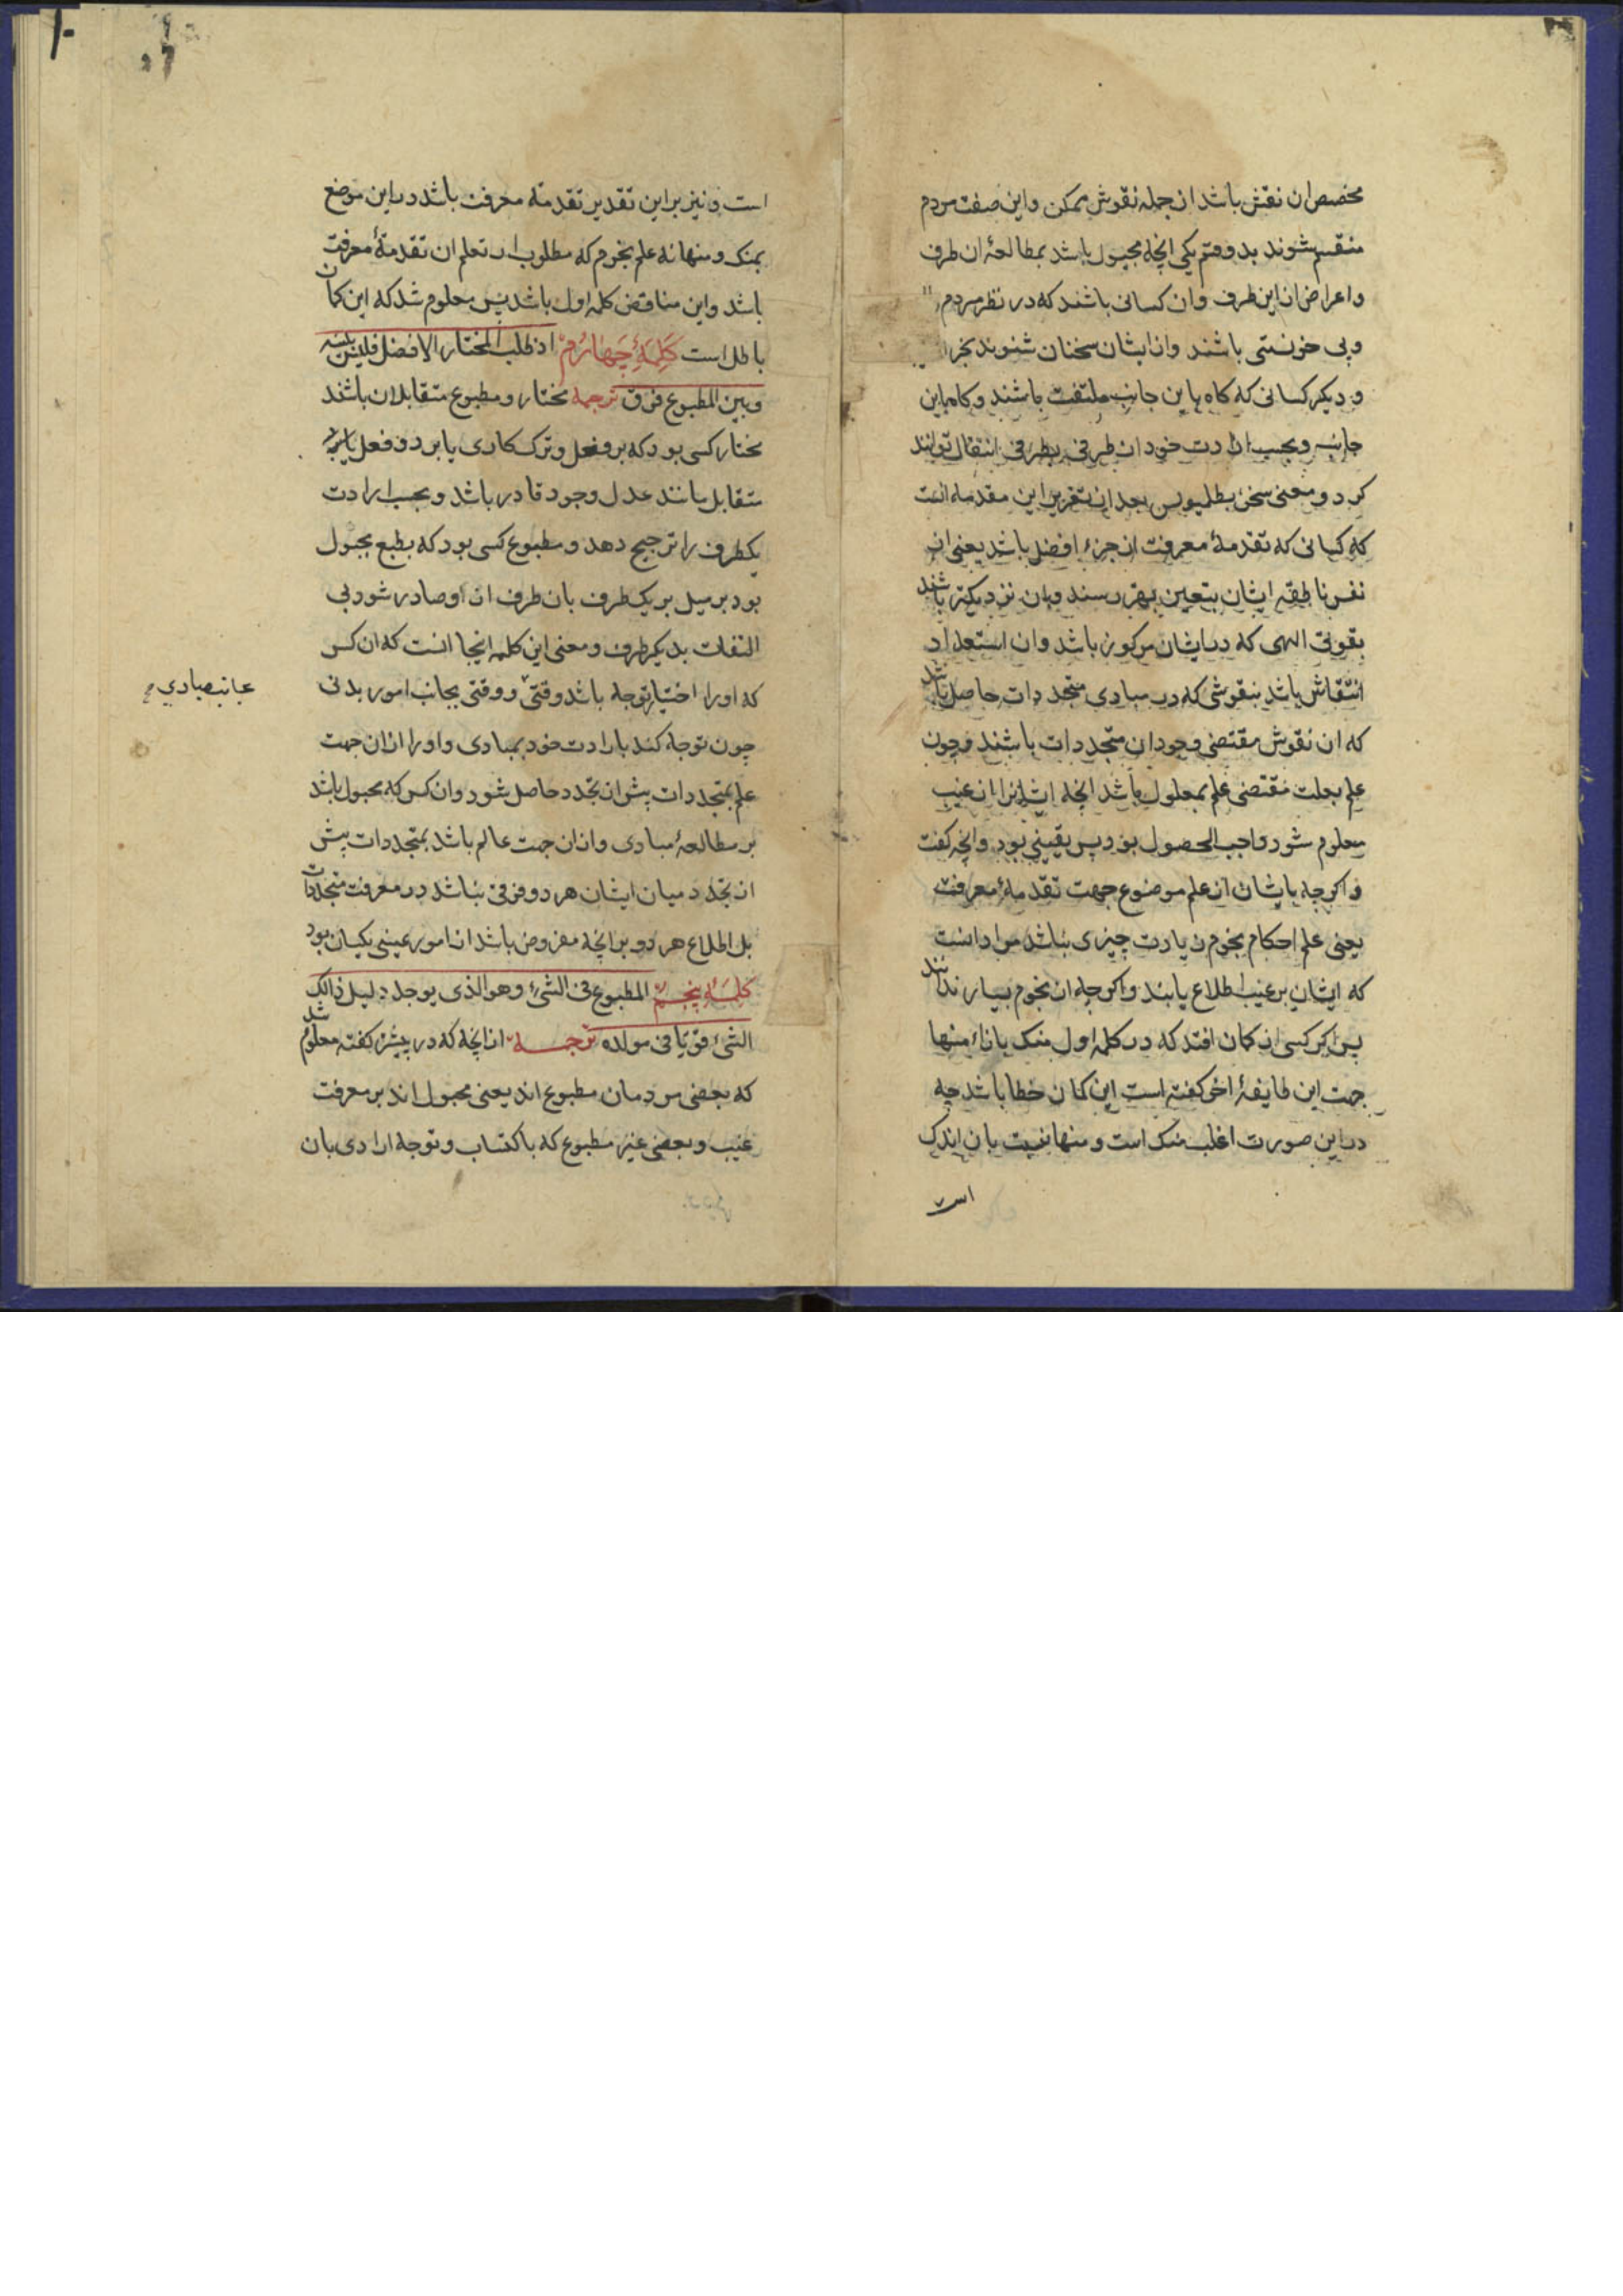 مخصص ان نقش باشد از جمله نقوش ممکن و این صفت مردم
منقسم شوند بدو قسم یکی انچه مجبول باشد بمطالعۀ ان طرف
و اعراض از این طرف و ان کسانی باشند که در نظر مردم
و بی خویشتی باشند و از ایشان سخنان شنوند بخرا
و دیگر کسانی که گاه باین جانب ملتفت باشند و گاه باین
جانب و بحسب ارادت خود از طرفی بطرفی انتقال توانند
کرد و معنی سخن بطلمیوس بعد از تقریر این مقدمات انست
که کسانی که تقدمۀ معرفت از جزء افضل باشد یعنی از
نفس ناطقه ایشان بتعین بهتر رسند و بان نزدیکتر باشند
بقوتی الهی که در ایشان مرکوز باشد و ان استعداد
انتقاش باشد بنقوشی که در مبادی متجددات حاصل باشد
که ان نقوش مقتضی وجود ان متجددات باشند و چون
علم بعلت مقتضی علم بمعلول باشد انچه ایشانرا از غیب
معلوم شود واجب الحصول بود پس یقینی بود و انچه گفت
و اگرچه بایشان از علم موضوع جهت تقدمۀ معرفت
یعنی علم احکام نجوم زیادت چیزی نباشد مراد انست
که ایشان بر غیب اطلاع یابند و اگرچه از نجوم بسیار ندانند
پس اگر کسی را گمان افتد که در کلمه اول منک بازاء منها
جهت این طایفۀ اخر گفته است این گمان خطا باشد چه
در این صورت اغلب منک است و منها نسبت بان اندک
است
است و نیز بر این تقدیر تقدمة معرفت باشد در این موضع
بمنک و منها نه علم نجوم که مطلوب از تعلم ان تقدمۀ معرفت
باشد و این مناقض کلمه اول باشد پس معلوم شد که این گمان
باطل است کلمۀ چهارم اذ طلب المختار الافضل فلیس بینه
و بین المطبوع فرق ترجمه مختار و مطبوع متقابلان باشند
مختار کسی بود که بر فعل و ترک کاری یا بر دو فعل
متقابل مانند عدل و جور قادر باشد و بحسب ارادت
یکطرف را ترجیح دهد و مطبوع کسی بود که بطبع مجبول
بود بر میل بر یک طرف بان طرف از او صادر شود بی
التفات بدیگر طرف و معنی این کلمه اینجا انست که ان کس
که او را اختیار توجه باشد وقتی و وقتی بجانب امور بدنی
بجانب مبادی
چون توجه کند بارادت خود بمبادی و او را از ان جهت
علم بمتجددات پیش از تجدد حاصل شود و ان کس که مجبول باشد
بر مطالعۀ مبادی و از ان جهت عالم باشد بمتجددات پیش
از تجدد میان ایشان هر دو فرقی نباشد در معرفت متجددات
بل اطلاع هر دو بر انچه مفروض باشد از امور غیبی یکسان بود
کلمۀ پنجم المطبوع فی الشیء و هو الذی یوجد دلیل ذالک
الشیء قویا فی مولده ترجمه از انچه که در پیش گفته معلوم شد
که بعضی مردمان مطبوع اند یعنی مجبول اند بر معرفت
غیب و بعضی غیر مطبوع که باکتساب و توجه ارادی بان